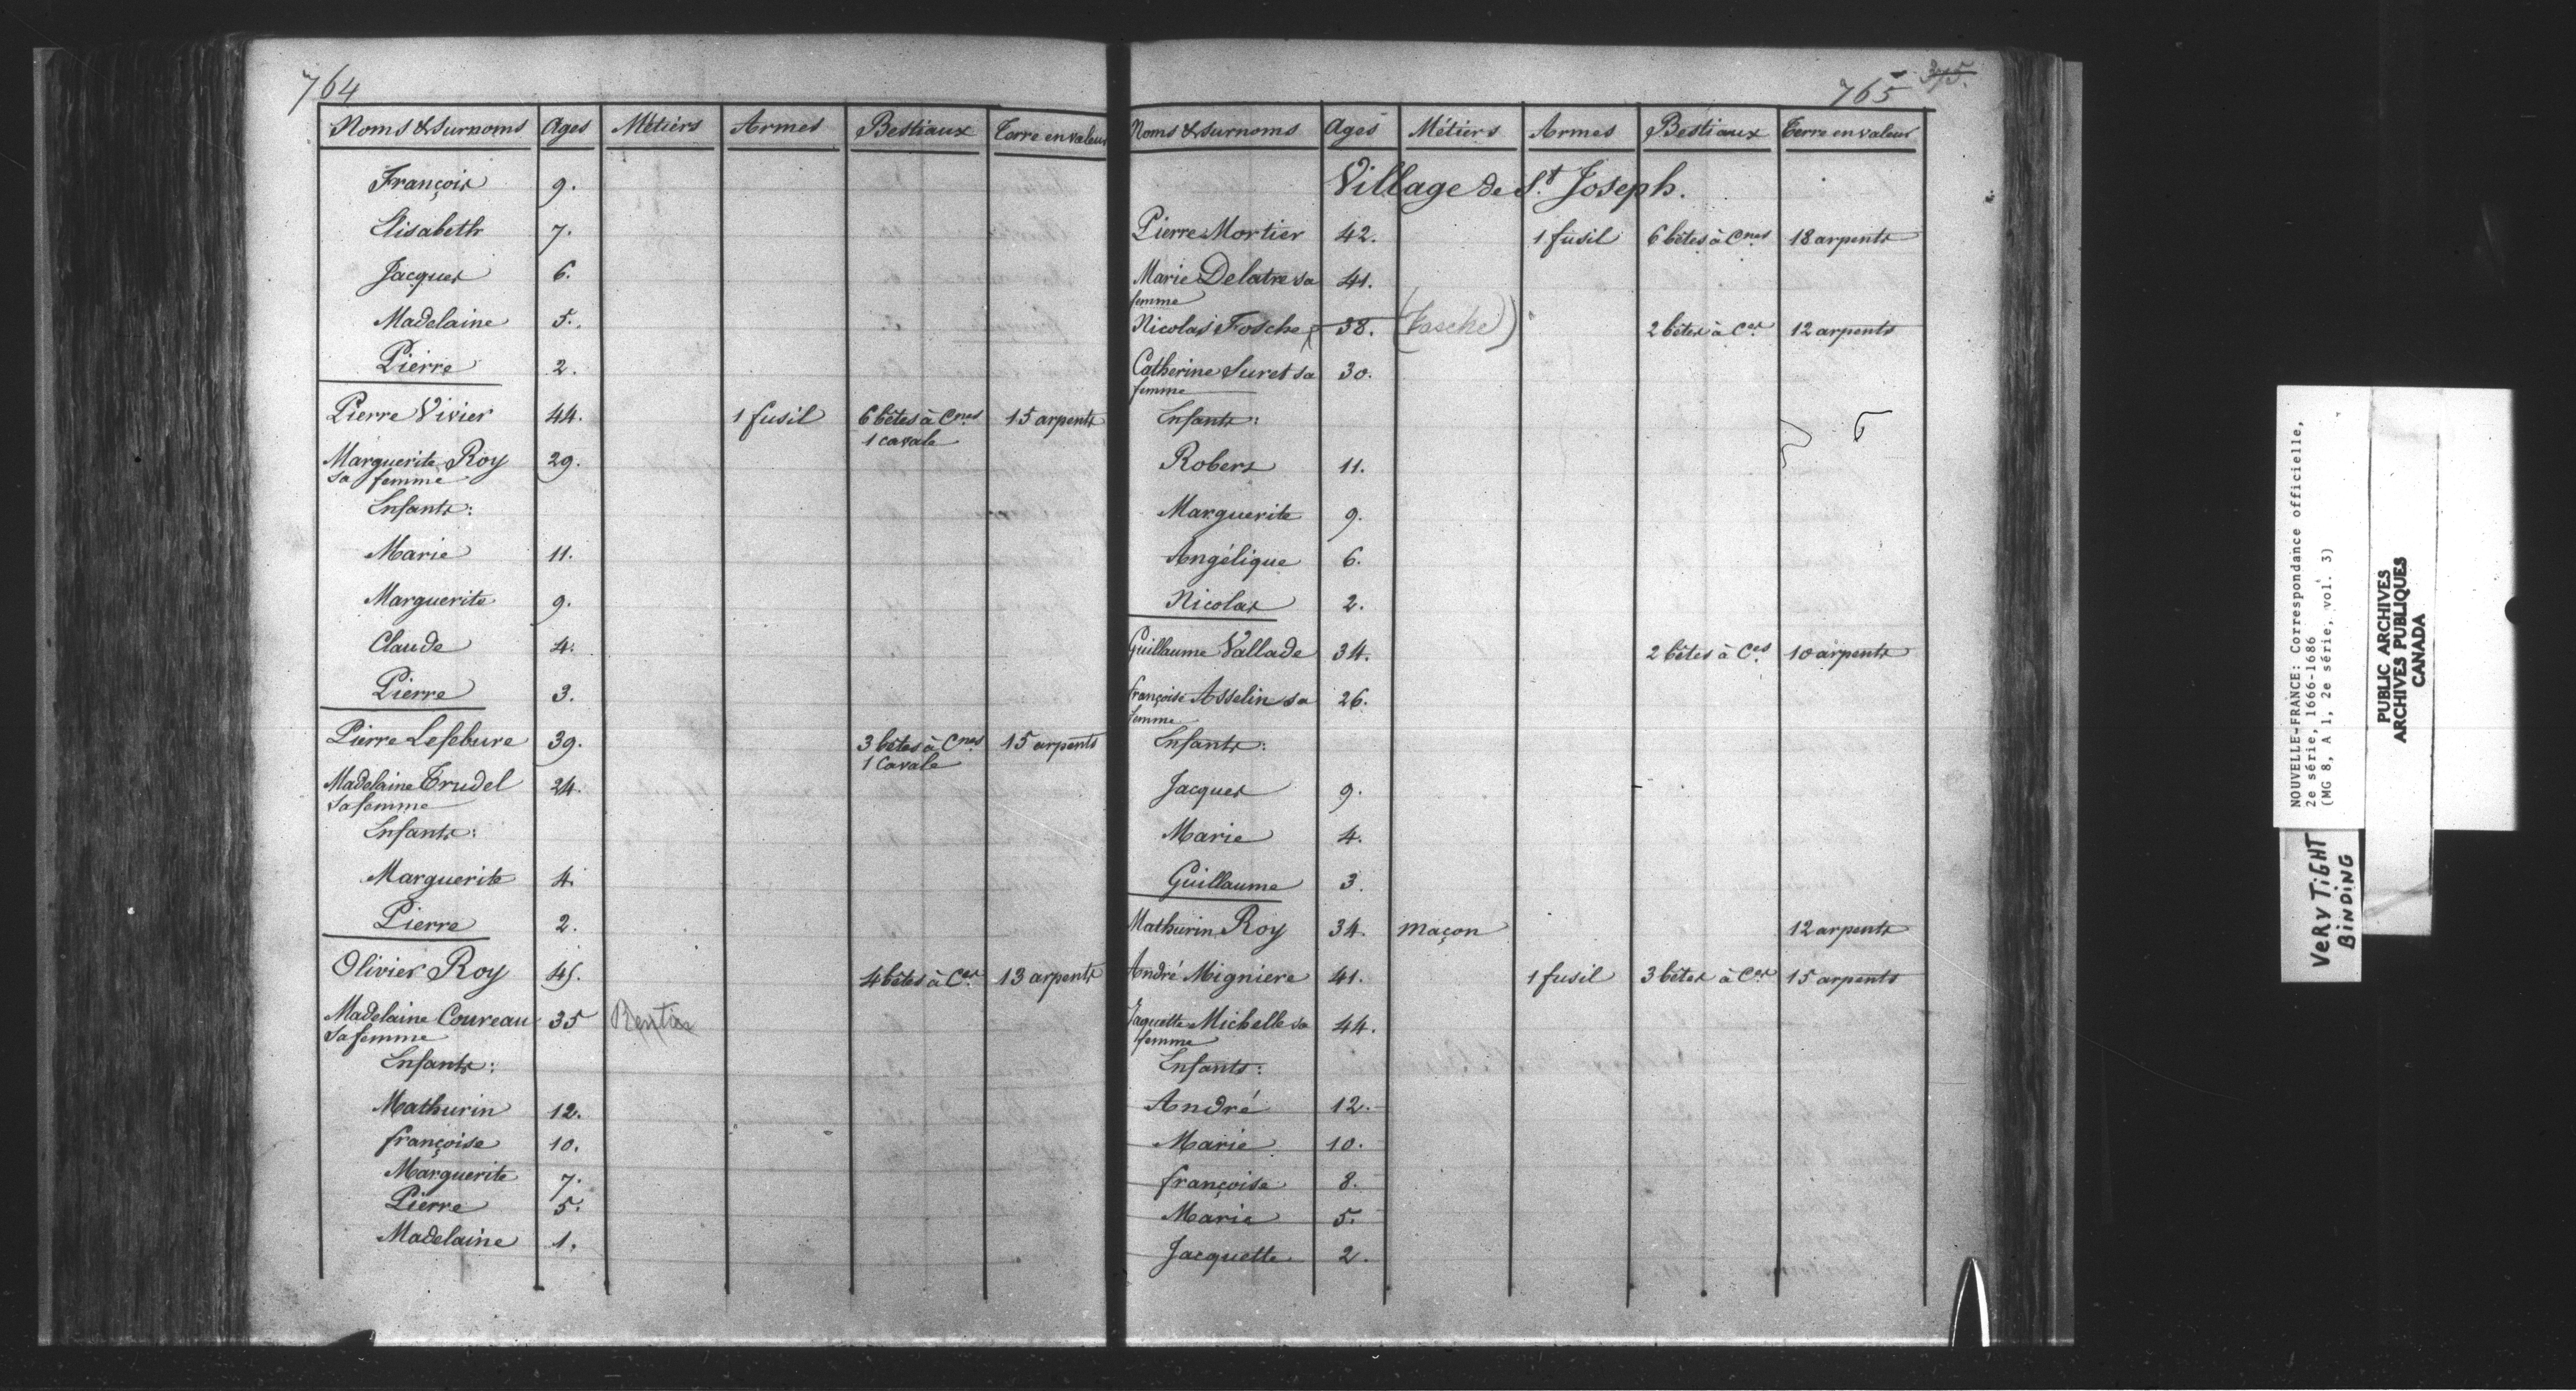 764
Noms & Surnoms Ages Métiers Armes Bestiaux Terre en valeur
François 9.
Elisabeth 7.
Jacques 6.
Madelaine 5.
Pierre 2.
Pierre Vivier 44. 1 fusil 6 bêtes à Cnes 15 arpents
1 cavale
Marguerite Roy 29.
sa femme
Enfants:
Marie 11.
Marguerite 9.
Claude 4.
Pierre 3.
Pierre Lefebure 39. 3 bêtes à Cnes 15 arpents
1 Cavale
Madelaine Trudel 24.
sa femme
Enfants:
Marguerite 4.
Pierre 2.
Olivier Roy 45. 4 bêtes à Ces 13 arpents
Madelaine Coureau 35
sa femme
Enfants:
Mathurin 12.
françoise 10.
Marguerite 7.
Pierre 5.
Madelaine 1.
765 375.
Noms & Surnoms Ages Métiers Armes Bestiaux Terre en valeur
Village de St Joseph.
Pierre Mortier 42. 1 fusil 6 bêtes à Cnes 18 arpents
Marie Delatre sa 41.
femme
Nicolas Fosche 38. (Fasche) 2 bêtes à Ces 12 arpents
Catherine Suret sa 30.
femme
Enfants:
Robers 11.
Marguerite 9.
Angélique 6.
Nicolas 2.
Guillaume Vallade 34. 2 bêtes à Ces 10 arpents
françoise Asselin sa 26.
femme
Enfants:
Jacques 9.
Marie 4.
Guillaume 3.
Mathurin Roy 34. maçon 12 arpents
André Migniere 41. 1 fusil 3 bêtes à Ces 15 arpents
Jaquette Michelle sa 44.
femme
Enfants:
André 12.
Marie 10.
françoise 8.
Marie 5.
Jacquette 2.
NOUVELLE-FRANCE: Correspondance officielle,
2e série, 1666-1686
(MG 8, A 1, 2e série, vol. 3)
PUBLIC ARCHIVES
ARCHIVES PUBLIQUES
CANADA
VERY TIGHT
BINDING